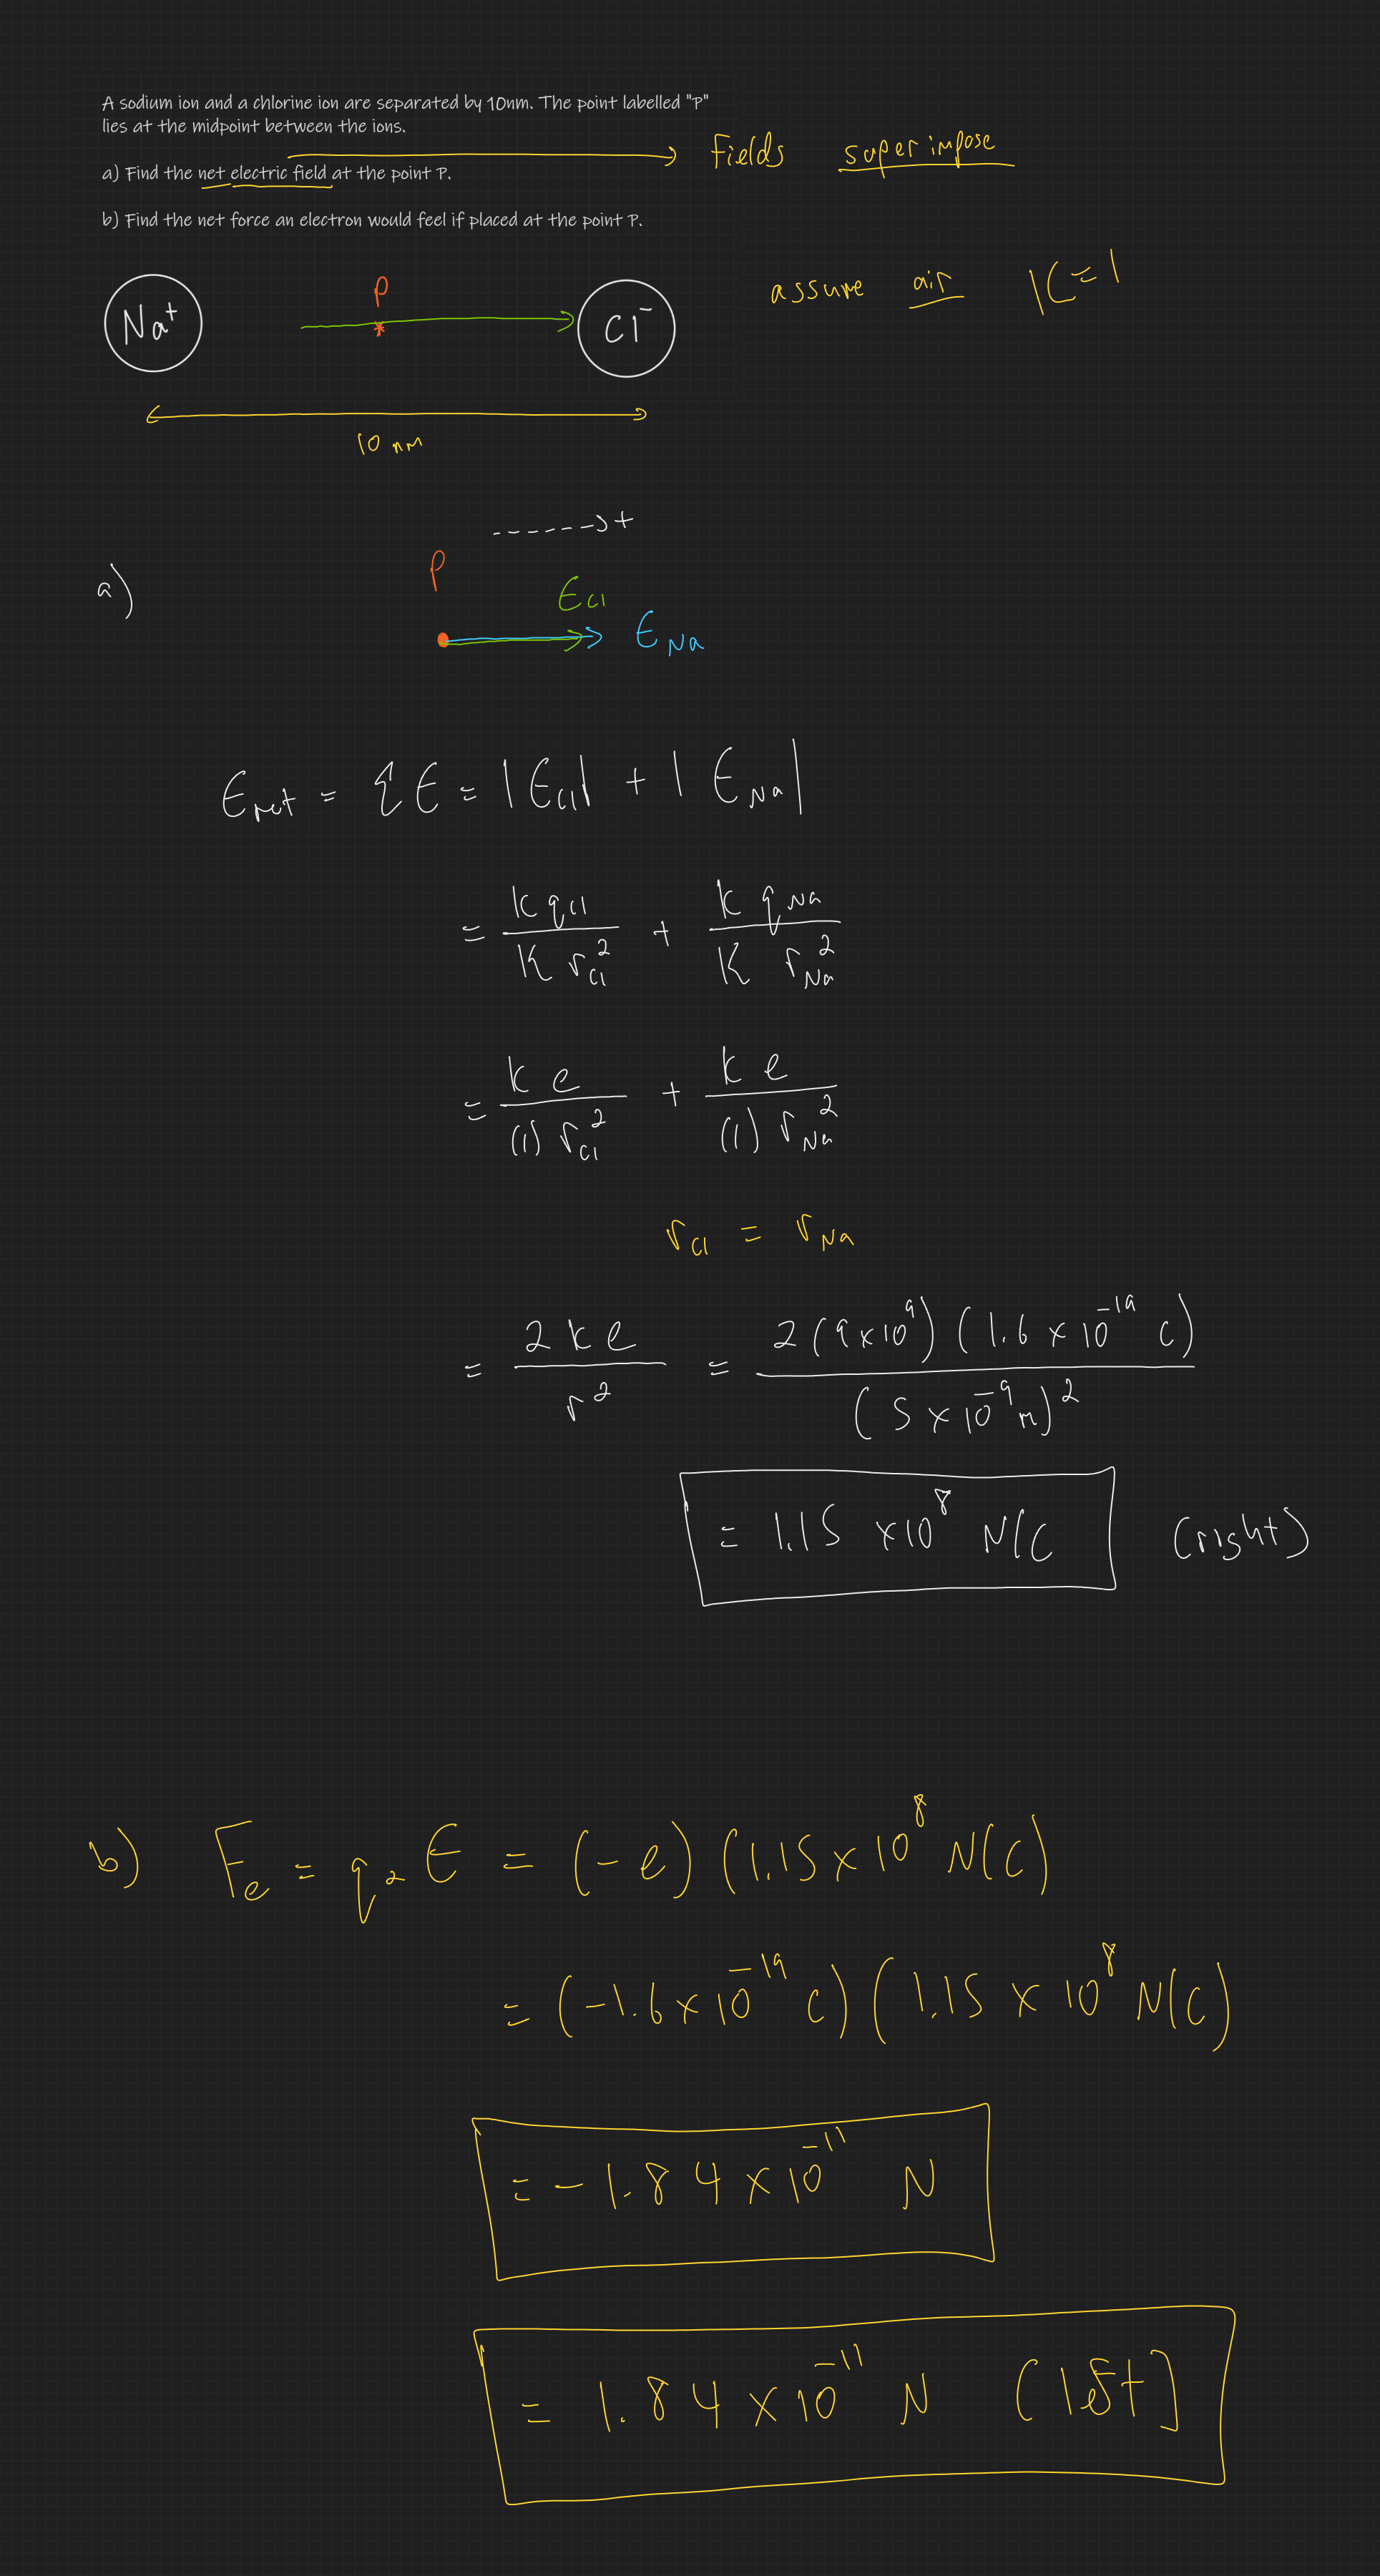 A sodium ion and a chlorine ion are separated by 10nm. The point labelled "P"
lies at the midpoint between the ions.
Fields superimpose
a) Find the net electric field at the point P.
b) Find the net force an electron would feel if placed at the point P.
assume air K = 1
Na⁺ P Cl⁻
10 nm
+
a) P
E_Cl
E_Na
E_net = ΣE = |E_Cl| + |E_Na|
= k q_Cl / K r_Cl² + k q_Na / K r_Na²
= k e / (1) r_Cl² + k e / (1) r_Na²
r_Cl = r_Na
= 2 k e / r² = 2 (9 x 10⁹) (1.6 x 10⁻¹⁹ C) / (5 x 10⁻⁹ m)²
= 1.15 x 10⁸ N/C (right)
b) F_e = q₂ E = (- e) (1.15 x 10⁸ N/C)
= (-1.6 x 10⁻¹⁹ C) (1.15 x 10⁸ N/C)
= - 1.84 x 10⁻¹¹ N
= 1.84 x 10⁻¹¹ N (left]